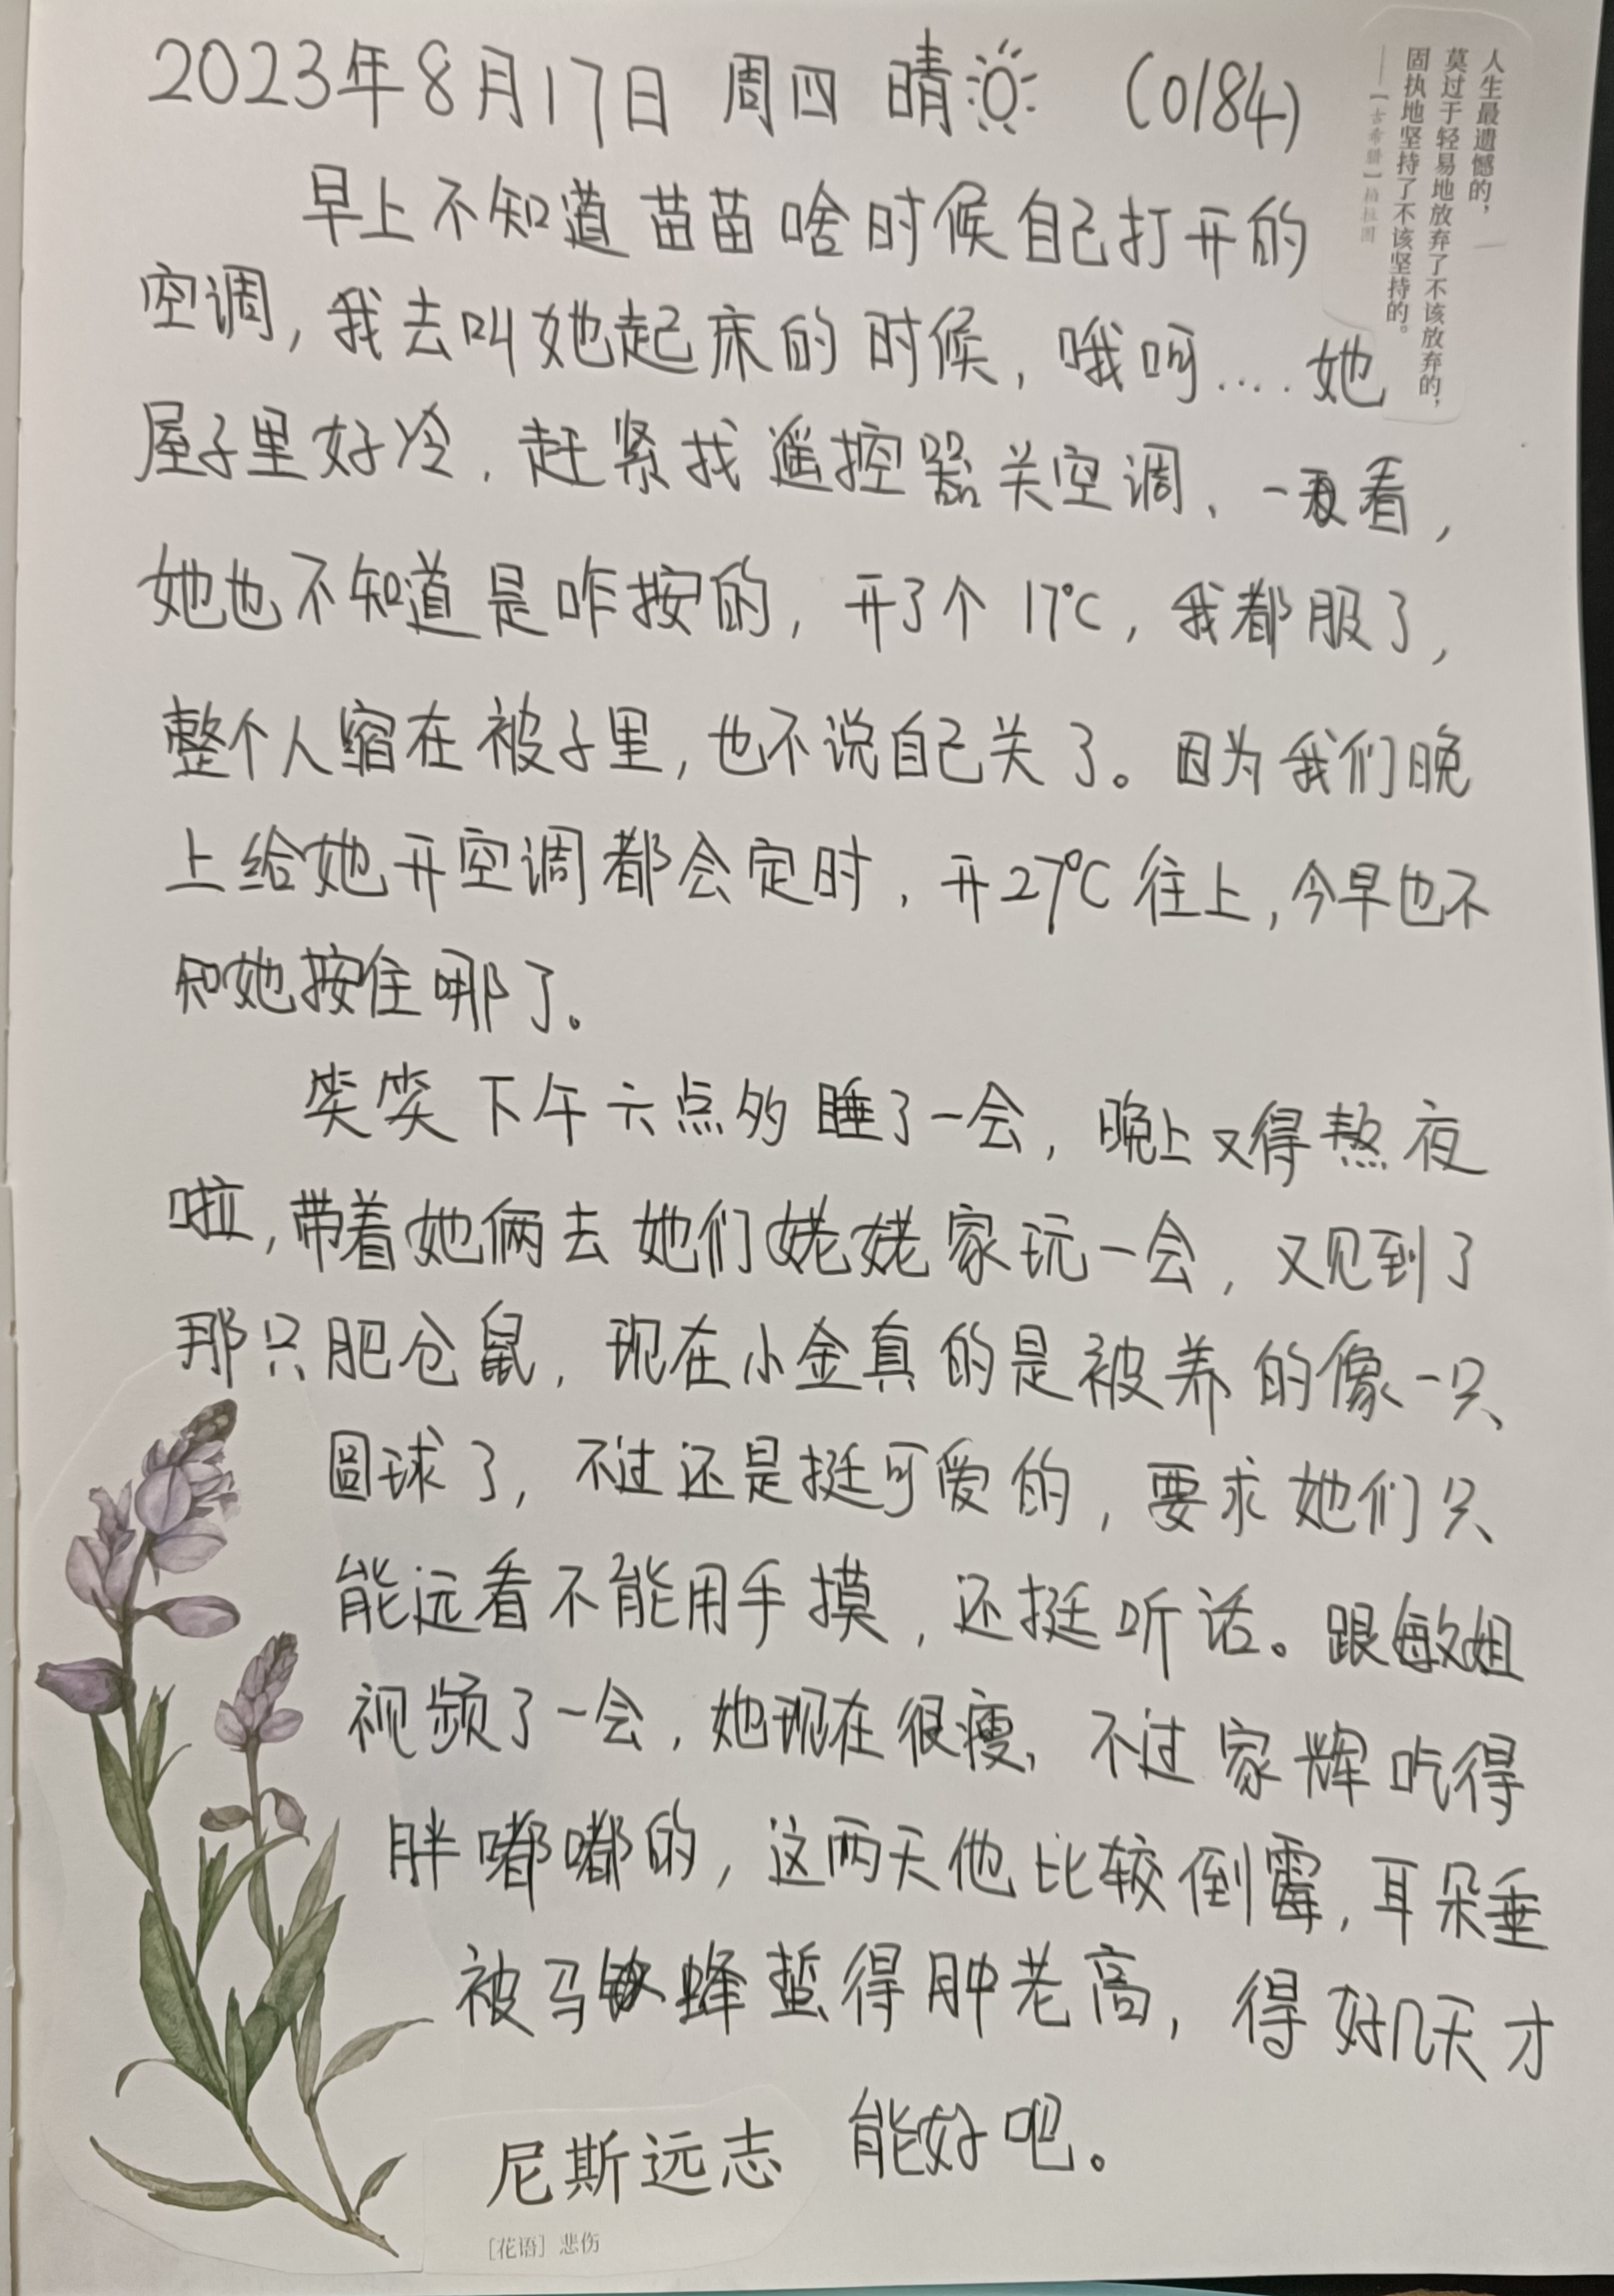 2023年8月17日 周四 晴 (0184)
人生最遗憾的，
莫过于轻易地放弃了不该放弃的，
固执地坚持了不该坚持的。
——【古希腊】柏拉图
早上不知道苗苗啥时候自己打开的
空调，我去叫她起床的时候，哦呵....她
屋子里好冷，赶紧找遥控器关空调、一看，
她也不知道是咋按的，开了个17℃，我都服了，
整个人缩在被子里，也不说自己关了。因为我们晚
上给她开空调都会定时，开27℃往上，今早也不
知她按住哪了。
笑笑下午六点多睡了一会，晚上又得熬夜
啦，带着她俩去她们姥姥家玩一会，又见到了
那只肥仓鼠，现在小金真的是被养的像一只
圆球了，不过还是挺可爱的，要求她们只
能远看不能用手摸，还挺听话。跟敏姐
视频了一会，她现在很瘦，不过家辉吃得
胖嘟嘟的，这两天他比较倒霉，耳朵垂
被马蜂蜇得肿老高，得好几天才
能好吧。
尼斯远志
［花语］悲伤